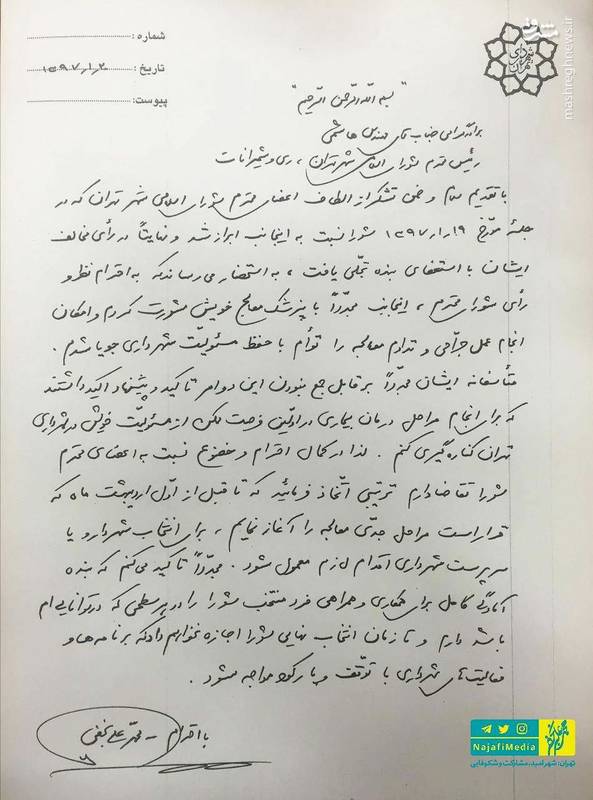 شماره :
تاریخ : ۱۳۹۷/۱/۲۰
پیوست :
شهرداری تهران
مشرق
mashreghnews.ir
"بسم الله الرحمن الرحیم"
برادر گرامی جناب آقای مهندس هاشمی
رئیس محترم شورای اسلامی شهر تهران، ری و شمیرانات
با تقدیم سلام و ضمن تشکر از الطاف اعضای محترم شورای اسلامی شهر تهران که در
جلسهٔ مورّخ ۱۳۹۷/۱/۱۹ شورا نسبت به اینجانب ابراز شد و نهایتاً در رأی مخالف
ایشان با استعفای بنده تجلّی یافت، به استحضار می‌رساند که به احترام نظر و
رأی شورای محترم، اینجانب مجدّداً با پزشک معالج خویش مشورت کردم و امکان
انجام عمل جرّاحی و تداوم معالجه را توأم با حفظ مسئولیّت شهرداری جویا شدم.
متأسفانه ایشان مجدّداً بر قابل جمع نبودن این دو امر تاکید و پیشنهاد اکید داشتند
که برای انجام مراحل درمان بیماری در اوّلین فرصت ممکن از مسئولیّت خویش در شهرداری
تهران کناره‌گیری کنم. لذا در کمال احترام و خضوع نسبت به اعضای محترم
شورا تقاضا دارم ترتیبی اتّخاذ فرمائید که تا قبل از اوّل اردیبهشت ماه که
قرار است مراحل جدّی معالجه را آغاز نمایم، برای انتخاب شهردار و یا
سرپرست شهرداری اقدام لازم معمول شود. مجدّداً تاکید می‌کنم که بنده
آمادگی کامل برای همکاری و همراهی فرد منتخب شورا را در هر سطحی که در توانایی‌ام
باشد دارم و تا زمان انتخاب نهایی شورا اجازه نخواهم داد که برنامه‌ها و
فعالیت‌های شهرداری با توقّف و یا رکود مواجه شود.
با احترام - محمّدعلی نجفی
NajafiMedia
تهران؛ شهر امید، مشارکت و شکوفایی